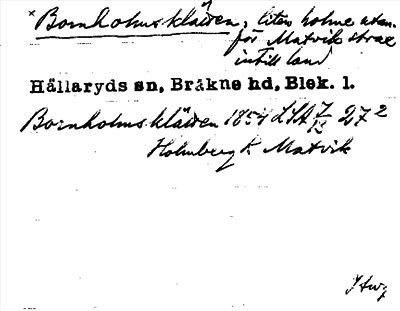 * Bornholmsklåven, liten holme utan-
för Matvik strax
intill land
Hällaryds sn, Bräkne hd, Blek. l.
Bornholmsklåven 1854 LSA 27²
Holmberg k. Matvik